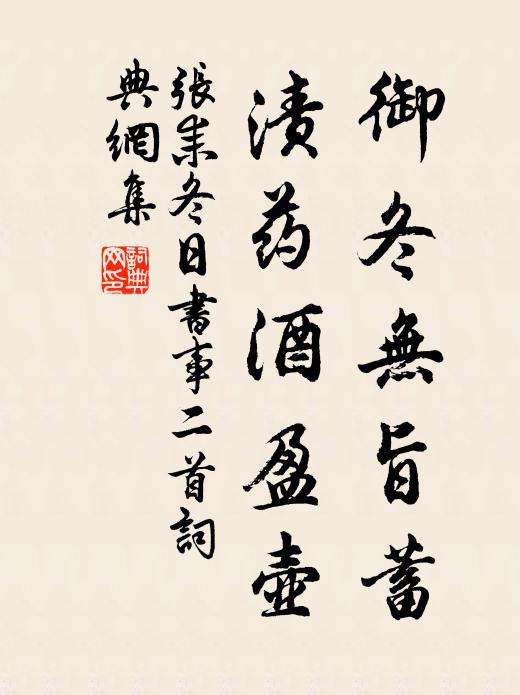 御冬無旨蓄
漬药酒盈壺
張耒冬日書事二首詞
典網集
詞典網印